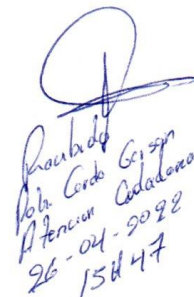 Recibido
Pablo Cerda Geison
Atencion Ciudadana
26-04-2022
15H47